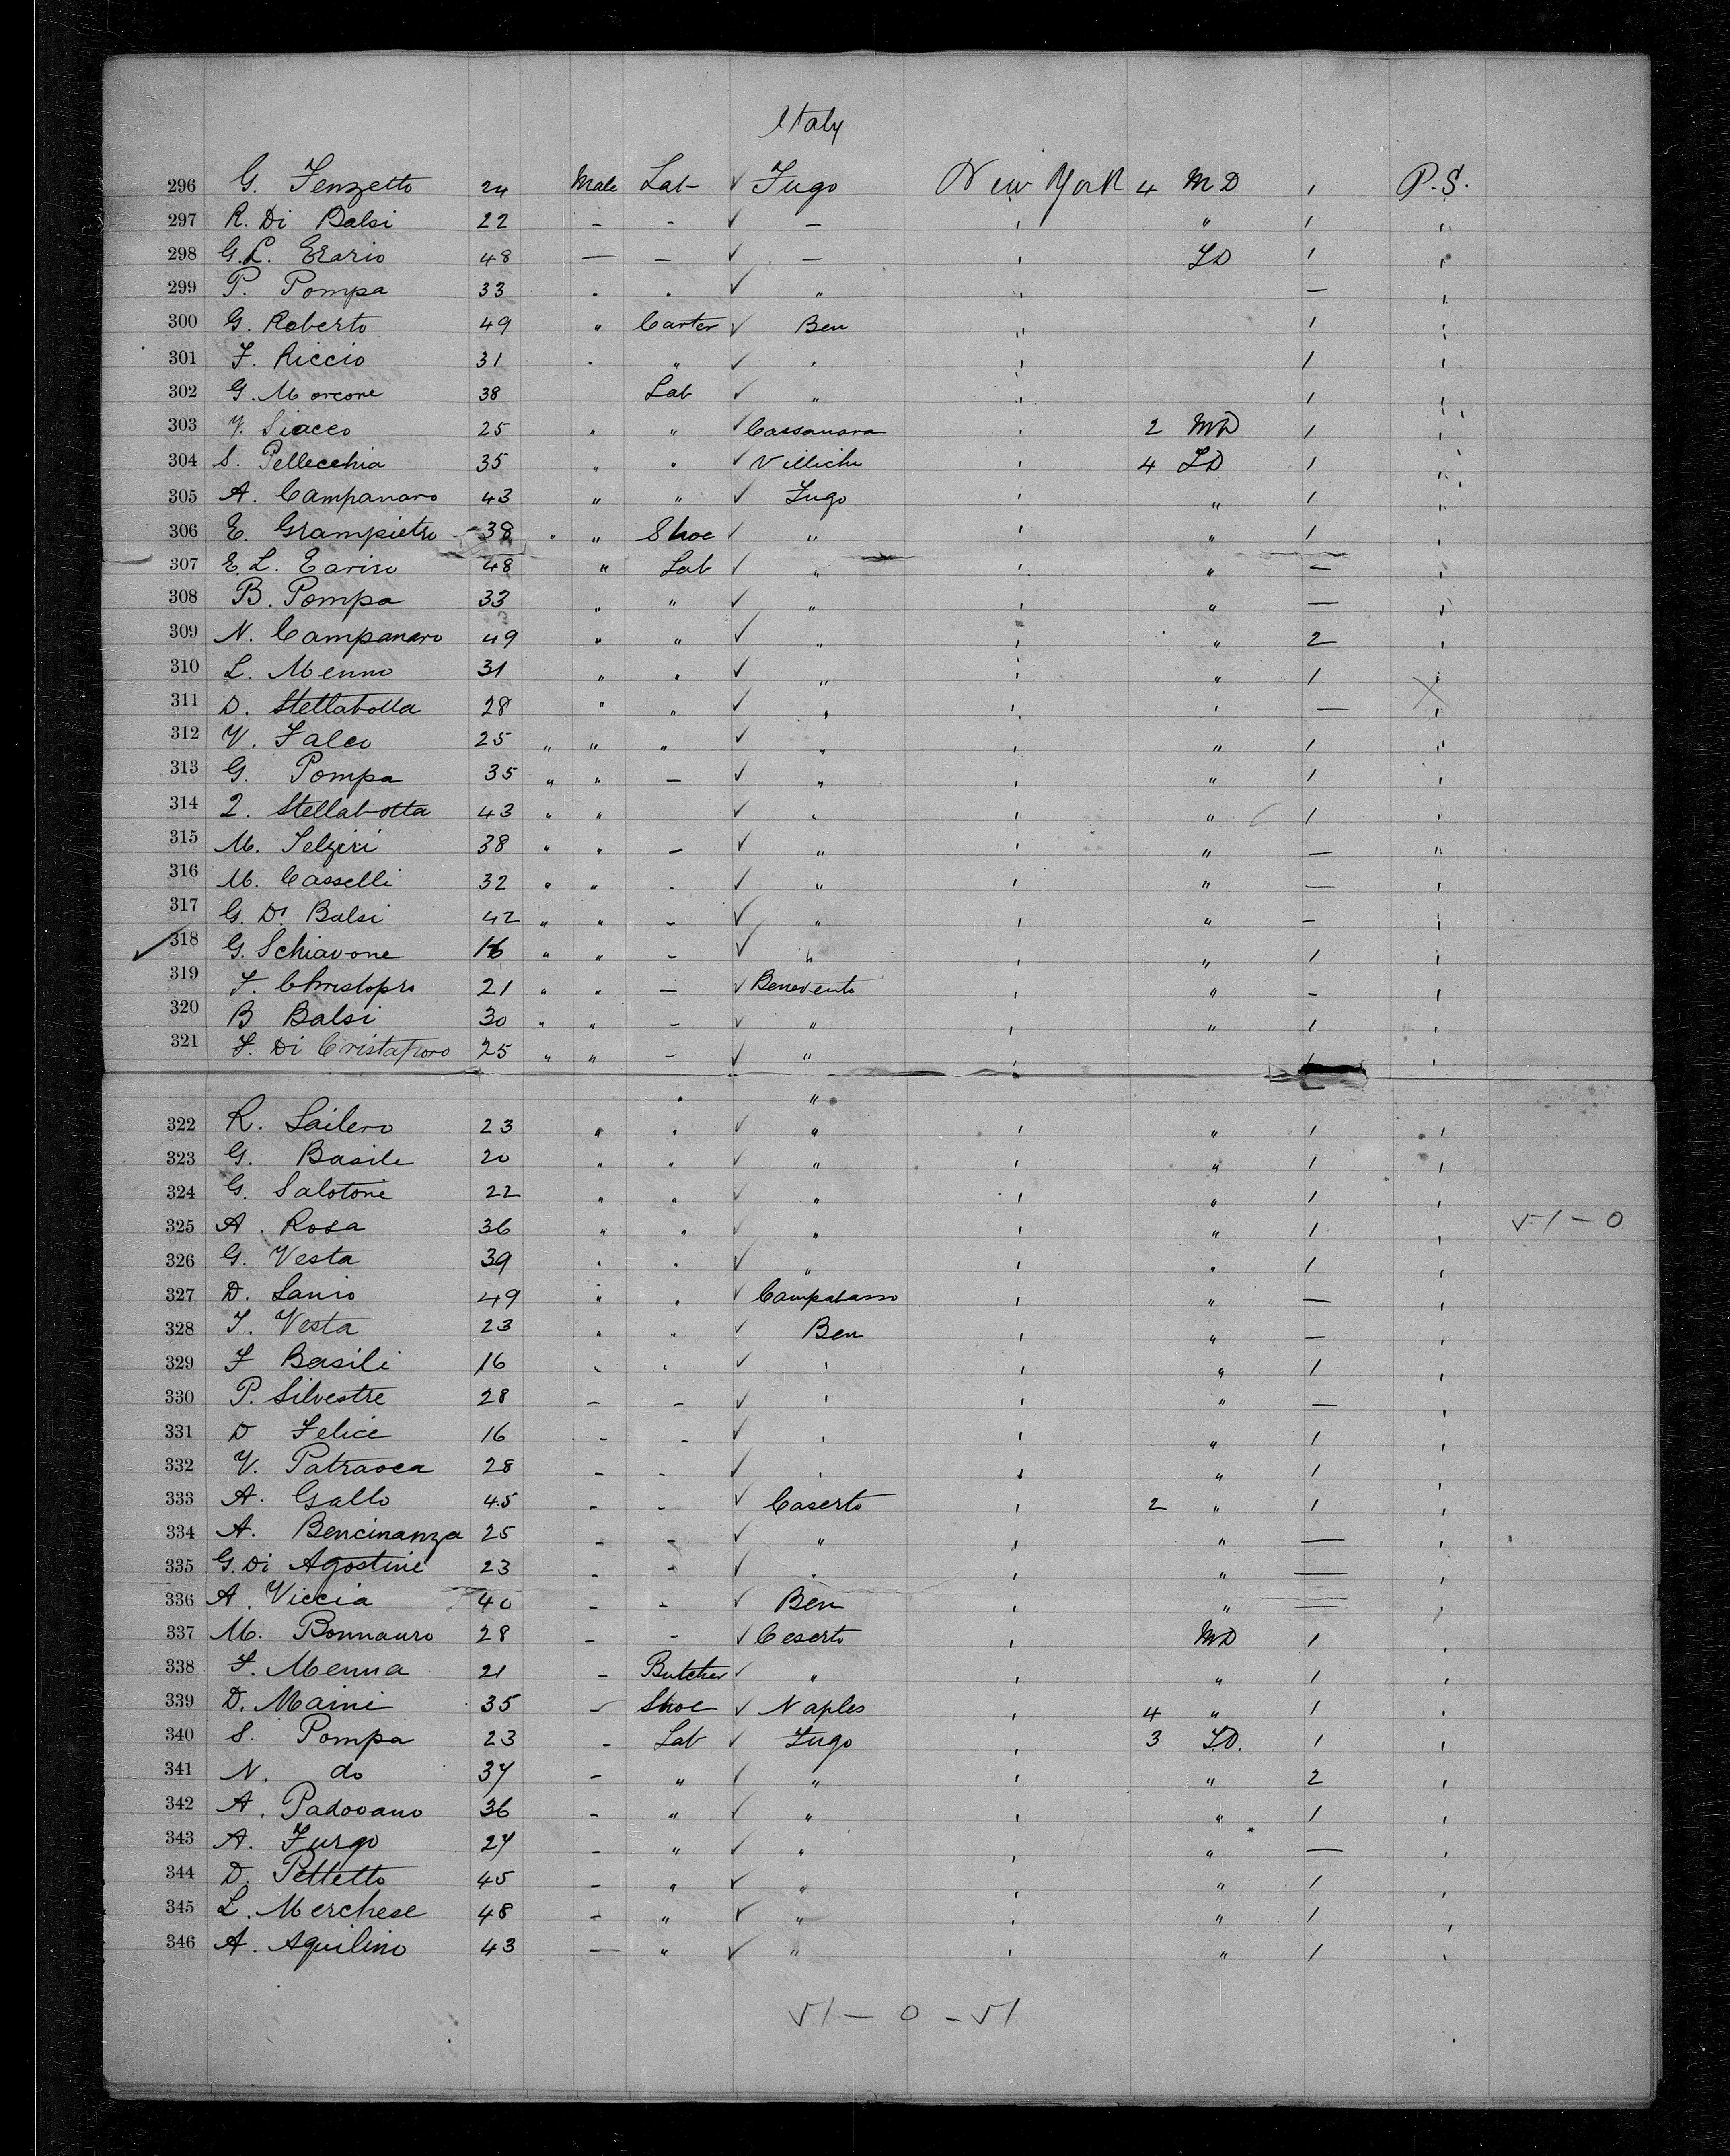 Italy
296 G. Fenzetto 24 Male Lab- ✓ Fugo New York 4 MD 1 P.S.
297 R. Di Balsi 22 - - ✓ - ' " 1 '
298 G.L. Erario 48 — — ✓ — ' LD 1 '
299 P. Pompa 33 " " ✓ " ' — '
300 G. Roberto 49 " Carter ✓ Ben ' 1 '
301 F. Riccio 31 " " ✓ " ' 1 '
302 G. Morcone 38 Lab ✓ " ' 1 '
303 V. Siacco 25 " " ✓ ' 2 MD 1 '
304 S. Pellecchia 35 " " ✓ ' 4 LD 1 '
305 A. Campanaro 43 " " ✓ Fugo ' " 1 '
306 E. Grampietro 38 " " Shoe ✓ " ' " 1 '
307 E. L. 48 " Lab ✓ " ' " — '
308 B. Pompa 33 " " ✓ " ' " — '
309 N. Campanaro 49 " " ✓ " ' " 2 '
310 L. Menno 31 " " ✓ " ' " 1 '
311 D. Stellabotta 28 " " ✓ " ' ' — '
312 V. Falco 25 " " " ✓ " ' " 1 '
313 G. Pompa 35 " " — ✓ " ' " 1 '
314 Stellabotta 43 " " ✓ " ' " 1 '
315 M. 38 " " - ✓ " ' " — "
316 M. Casselli 32 " " - ✓ " ' " — '
317 G. Di Balsi 42 " " - ✓ " ' " - '
✓ 318 G. Schiavone 16 " " - ✓ " ' " 1 '
319 F. Christopro 21 " " — ✓ Benevento ' " - '
320 B Balsi 30 " " - ✓ " ' " 1 '
321 F. Di Cristaforo 25 " " - ✓ " ' 1 '
" "
322 R. Sailero 23 " " ✓ " ' " 1 '
323 G. Basile 20 " " ✓ " ' " 1 '
324 G. Salotone 22 " " ✓ " ' " 1 '
325 A. Rosa 36 " " ✓ " ' " 1 ' 51-0
326 G. Vesta 39 " " ✓ " ' " 1 '
327 D. Lanio 49 " " ✓ Campabasso ' " — '
328 Vesta 23 " " ✓ Ben ' " — '
329 F Basili 16 " " ✓ ' ' " 1 '
330 P. Silvestre 28 - - ✓ ' ' " — '
331 D Felice 16 - - ✓ ' ' " 1 '
332 V. Patraoca 28 - - ✓ ' ' " 1 '
333 A. Gallo 45 - - ✓ Caserto ' 2 " 1 '
334 A. Bencinanza 25 - - ✓ " ' " — '
335 G. Di Agostine 23 - - ✓ " ' " — '
336 A. Viccia 40 - - ✓ Ben ' " — '
337 M. Bonnauro 28 - - ✓ Ceserto ' MD 1 '
338 F. Menna 21 - Butcher ✓ " ' " 1 '
339 D. Maine 35 - Shoe ✓ Naples ' 4 " 1 '
340 S. Pompa 23 - Lab ✓ Fugo ' 3 LD. 1 '
341 N. do 37 - " ✓ " ' " 2 '
342 A. Padovano 36 - " ✓ " ' " 1 '
343 A. Furgo 27 - " ✓ " ' " — '
344 D. Pettetto 45 - " ✓ " ' " 1 '
345 L. Merchese 48 - " ✓ " ' " 1 '
346 A. Aquilino 43 — " ✓ " ' " 1 '
51 - 0 - 51